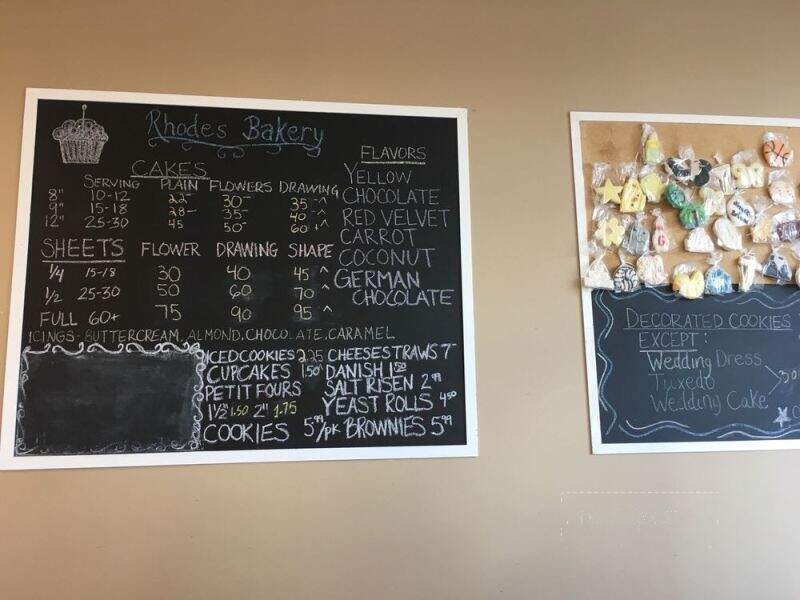 Rhodes Bakery
CAKES
SERVING PLAIN FLOWERS DRAWING
8" 10-12 22- 30- 35-^
9" 15-18 28- 35- 40-^
12" 25-30 45 50- 60+^
SHEETS FLOWER DRAWING SHAPE
1/4 15-18 30 40 45 ^
1/2 25-30 50 60 70 ^
FULL 60+ 75 90 95 ^
FLAVORS
YELLOW
CHOCOLATE
RED VELVET
CARROT
COCONUT
GERMAN
CHOCOLATE
ICINGS - BUTTERCREAM, ALMOND, CHOCOLATE, CARAMEL
ICED COOKIES 2.25
CUPCAKES 1.50
PETIT FOURS
1 1/2" 1.50 2" 1.75
COOKIES 5.99/pk
CHEESE STRAWS 7-
DANISH 1.50
SALT RISEN 2.99
YEAST ROLLS 4.50
BROWNIES 5.99
DECORATED COOKIES
EXCEPT:
Wedding Dress
Tuxedo
Wedding Cake